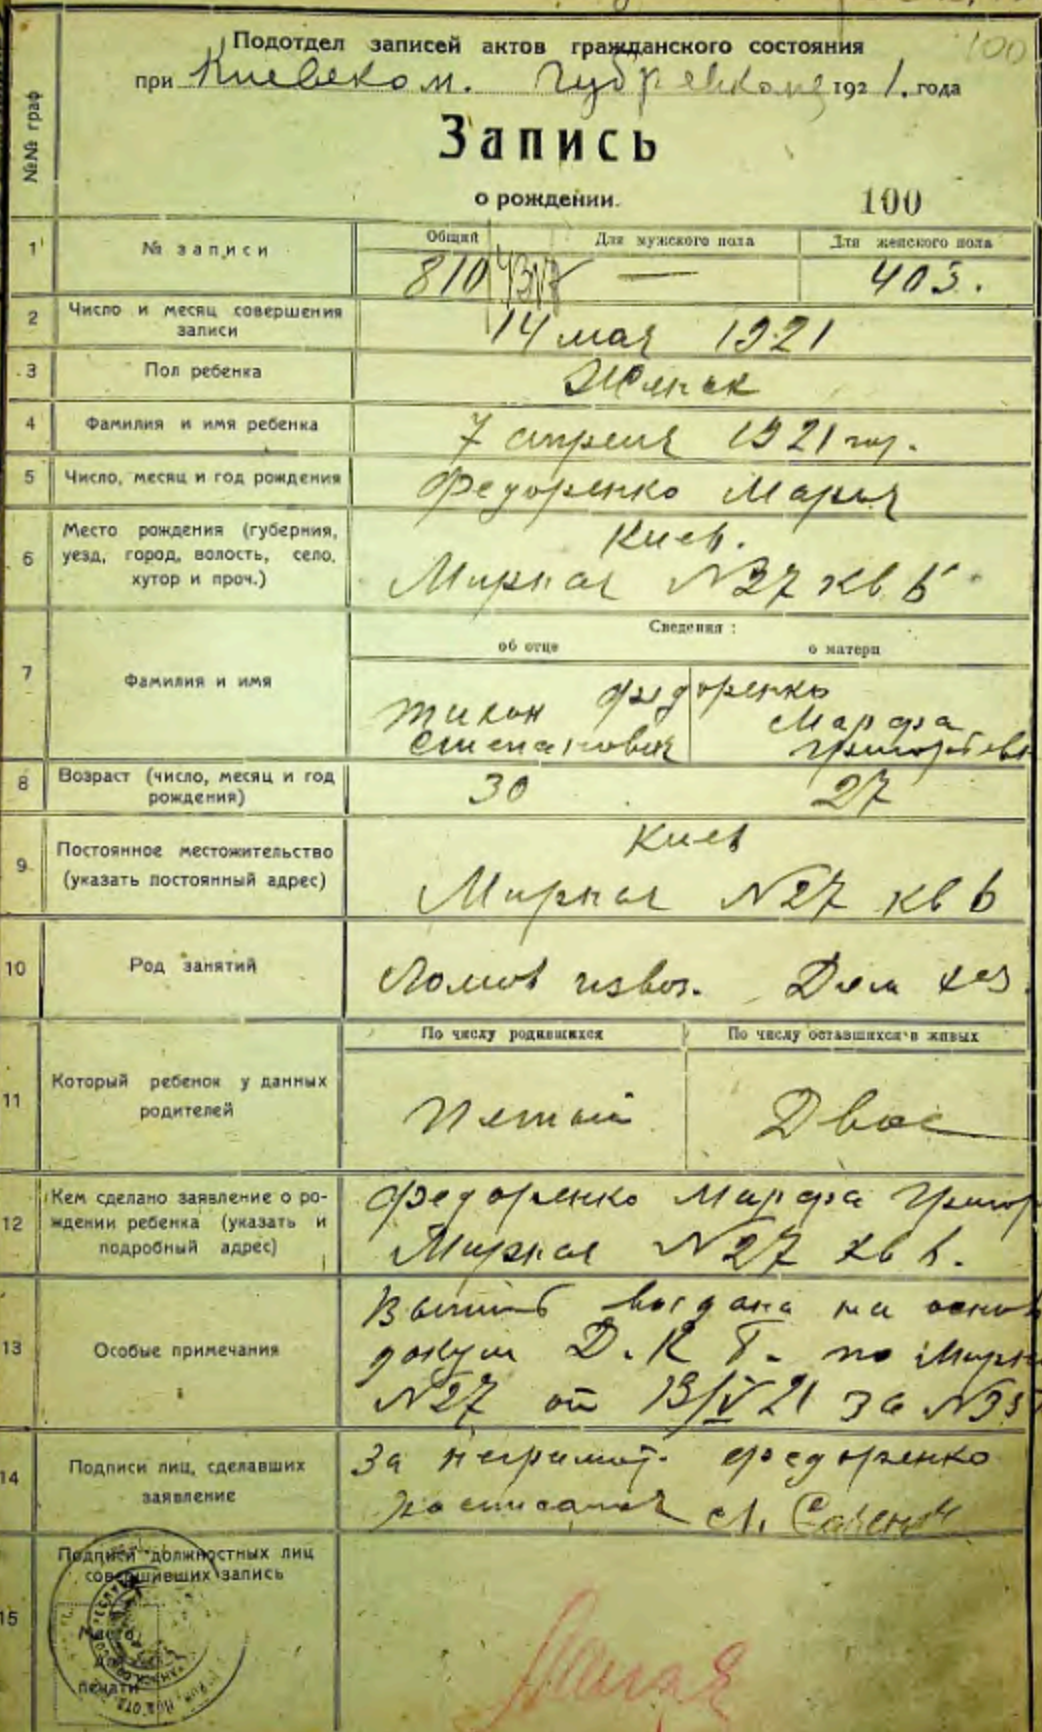 100
Подотдел записей актов гражданского состояния
при Киевском. Губревкоме 1921. года
№№ граф
Запись
о рождении.
100
1 № записи
Общий Для мужского пола Для женского пола
810 — 403.
2 Число и месяц совершения записи
14 мая 1921
3 Пол ребенка
Женск
4 Фамилия и имя ребенка
7 апреля 1921 год.
5 Число, месяц и год рождения
Федоренко Мария
6 Место рождения (губерния,
уезд, город, волость, село,
хутор и проч.)
Киев.
Мирная №27 кв. 6
Сведения:
об отце о матери
7 Фамилия и имя
Федоренко
Тихон Марфа
Степанович Григорьевн
8 Возраст (число, месяц и год
рождения)
30 27
9 Постоянное местожительство
(указать постоянный адрес)
Киев
Мирная №27 кв 6
10 Род занятий
Ломов извоз. Дом хоз.
По числу родившихся По числу оставшихся в живых
11 Который ребенок у данных
родителей
Пятый Двое
12 Кем сделано заявление о ро-
ждении ребенка (указать и
подробный адрес)
Федоренко Марфа Григор
Мирная №27 кв 6.
13 Особые примечания
выдана на основ
докум Д. К. Б. по Мирн
№27 от 13/V 21 за №35
14 Подписи лиц, сделавших
заявление
За неграмот. Федоренко
расписался
15 Подписи должностных лиц
совершивших запись
Место
для
печати